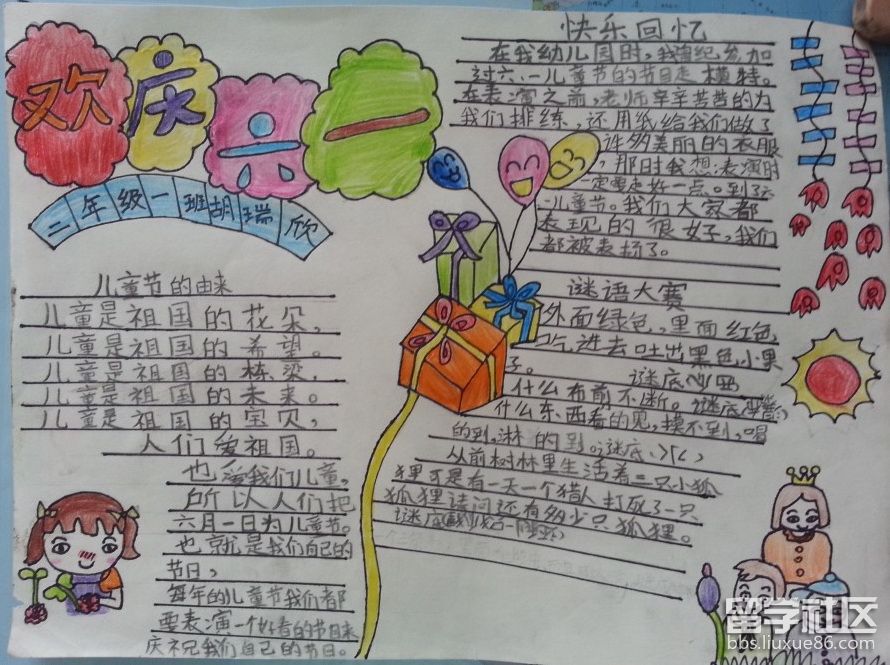 欢庆六一
二年级一班胡瑞欣
儿童节的由来
儿童是祖国的花朵,
儿童是祖国的希望。
儿童是祖国的栋梁,
儿童是祖国的未来。
儿童是祖国的宝贝,
人们爱祖国。
也爱我们儿童,
所以人们把
六月一日为儿童节。
也就是我们自己的
节日,
每年的儿童节我们者都
要表演一个好看的节目来
庆祝我们自己的节日。
快乐回忆
在我幼儿园时,我演纪参加
过六、一儿童节的节目走模特。
在表演之前,老师辛辛苦苦的为
我们排练,还用纸给我们做了
许多美丽的衣服
,那时我想:表演时
一定要走好一点。到了六
一儿童节。我们大家都
表现的很好,我们
都被表扬了。
谜语大赛
外面绿色,里面红色,
吃进去吐出黑色小果
子。 谜底
什么布前不断。谜底
什么东西看的见,摸不到,喝
的到,淋的到。谜底:
从前树林里生活着三只小狐
狸可是有一天一个猎人打死了一只
狐狸请问还有多少只狐狸。
谜底
留学社区
bbs.liuxue86.com